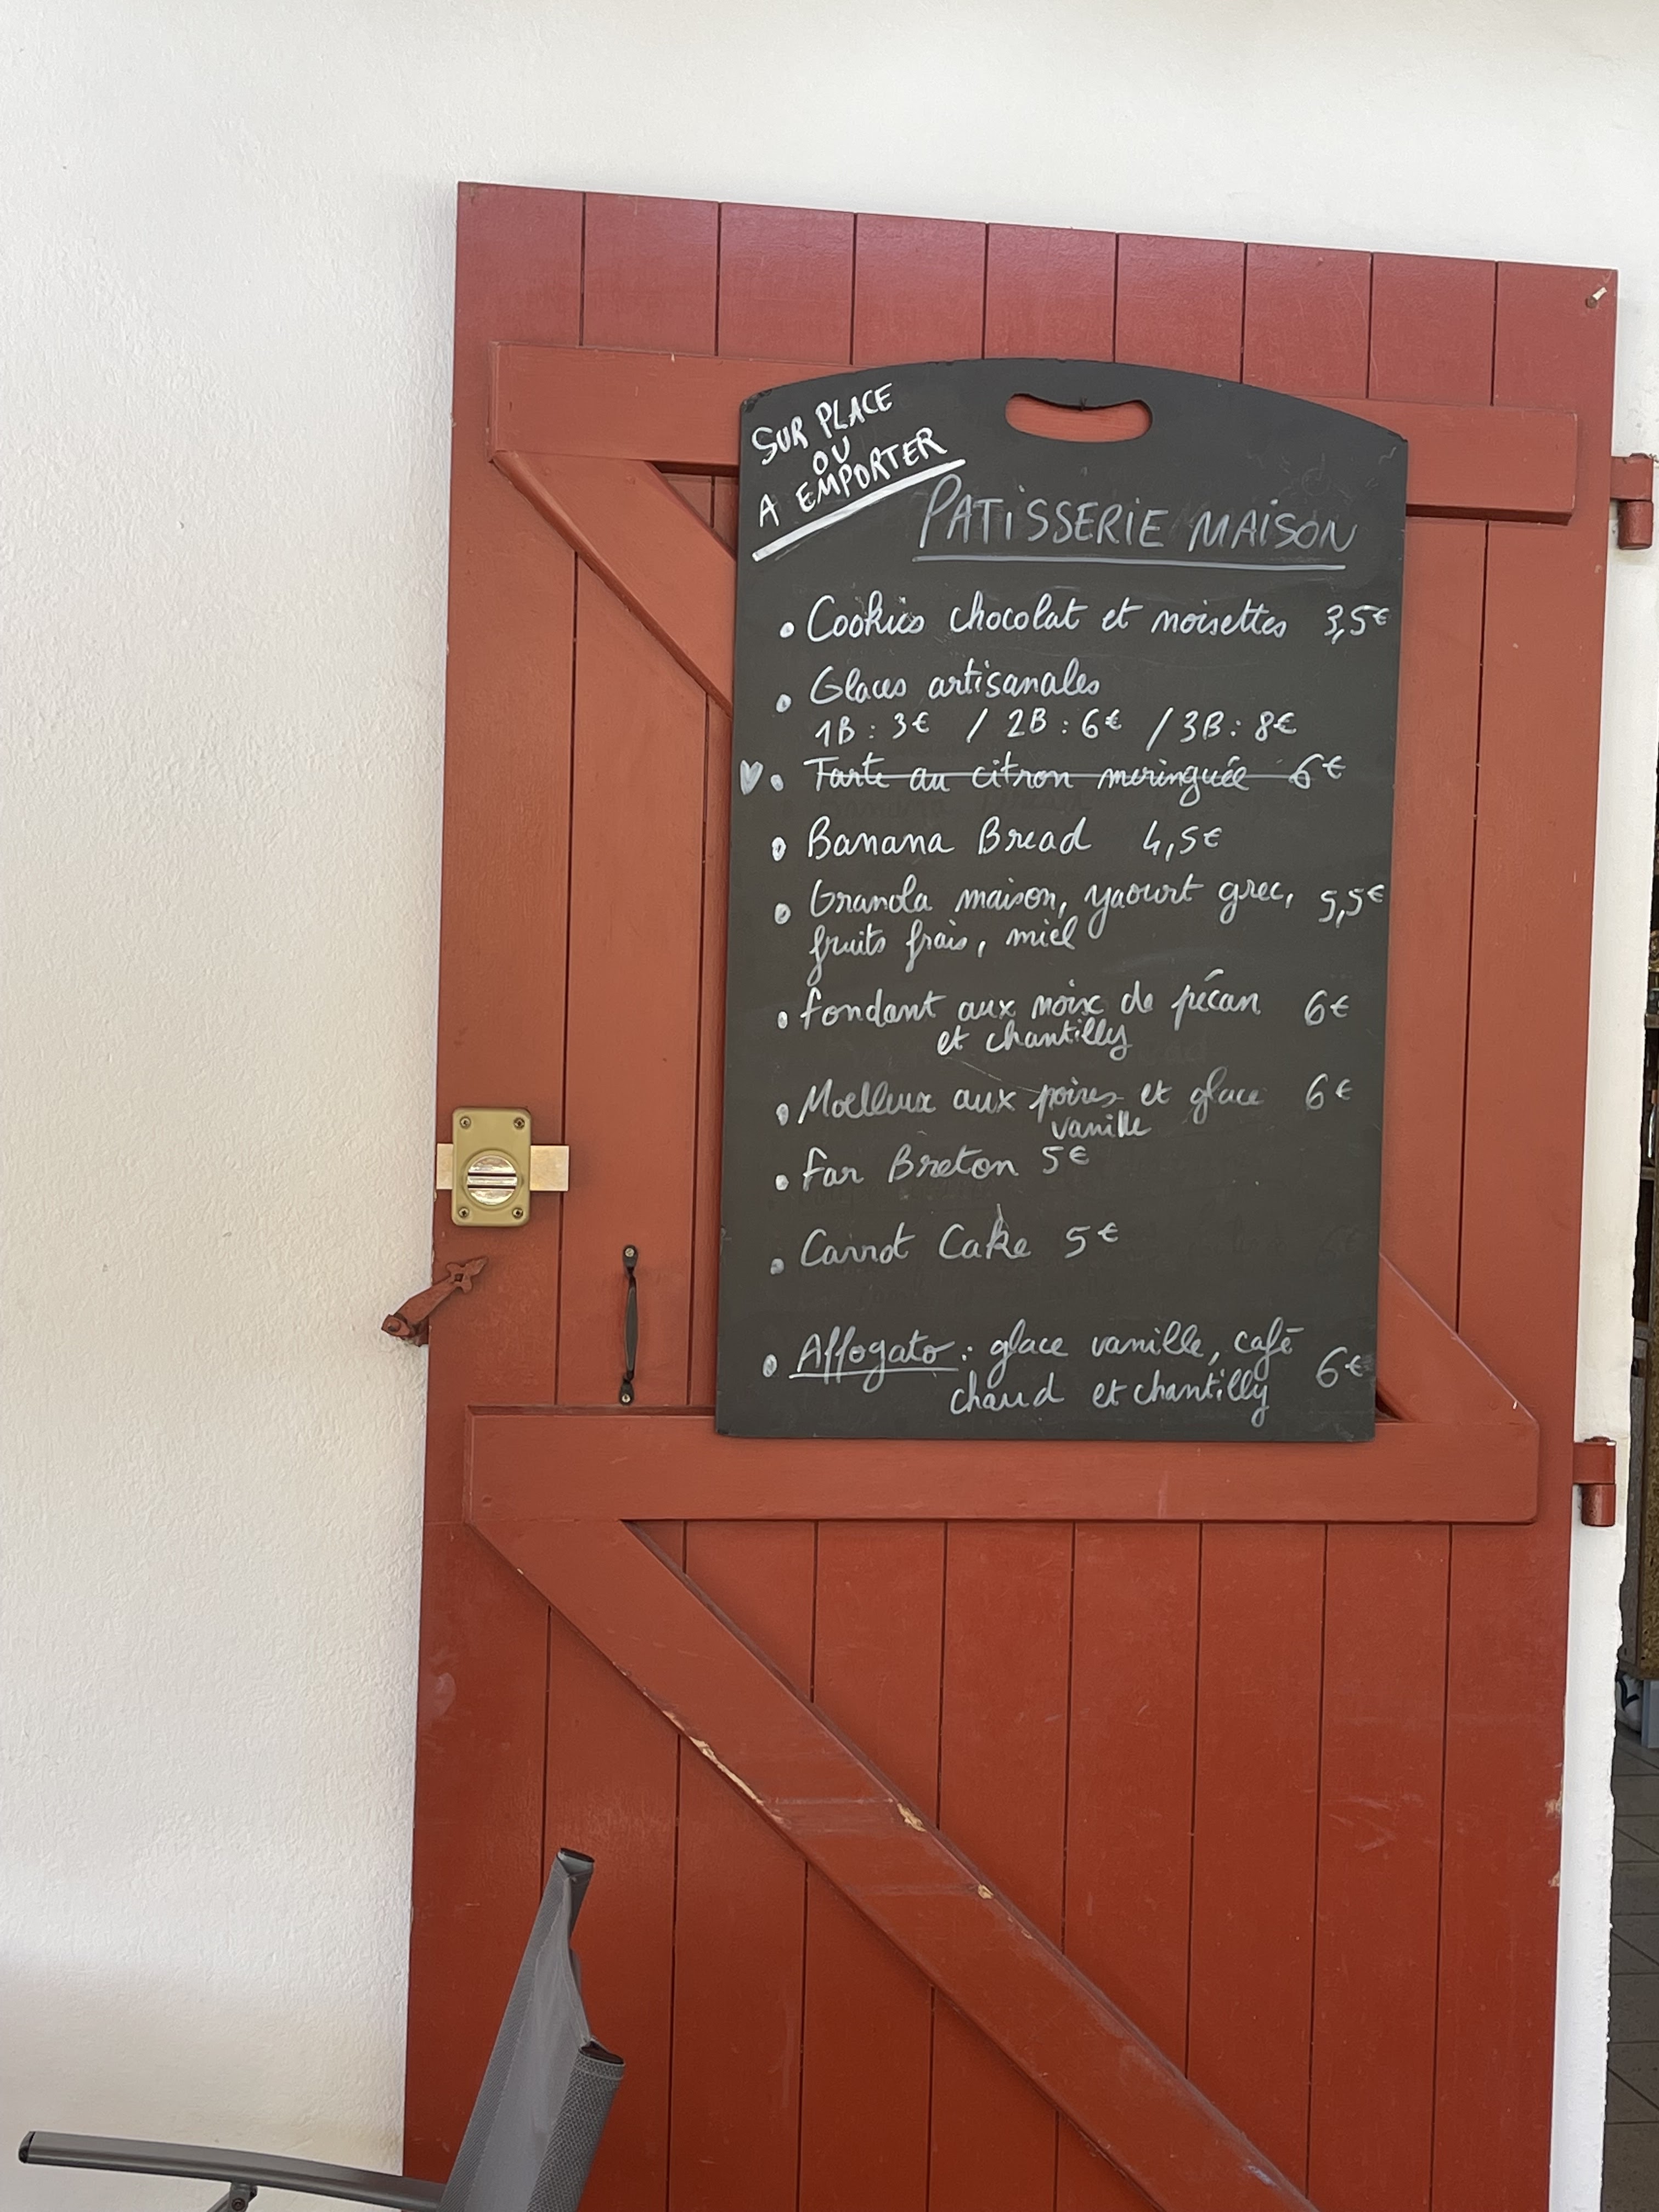 SUR PLACE
OU
A EMPORTER
PATISSERIE MAISON
• Cookies chocolat et noisettes 3,5€
• Glaces artisanales
1B : 3€ / 2B : 6€ / 3B : 8€
♥ • Tarte au citron meringuée 6€
• Banana Bread 4,5€
• Granola maison, yaourt grec, 5,5€
fruits frais, miel
• Fondant aux noix de pécan 6€
et chantilly
• Moelleux aux poires et glace 6€
vanille
• Far Breton 5€
• Carrot Cake 5€
• Affogato : glace vanille, café
chaud et chantilly 6€